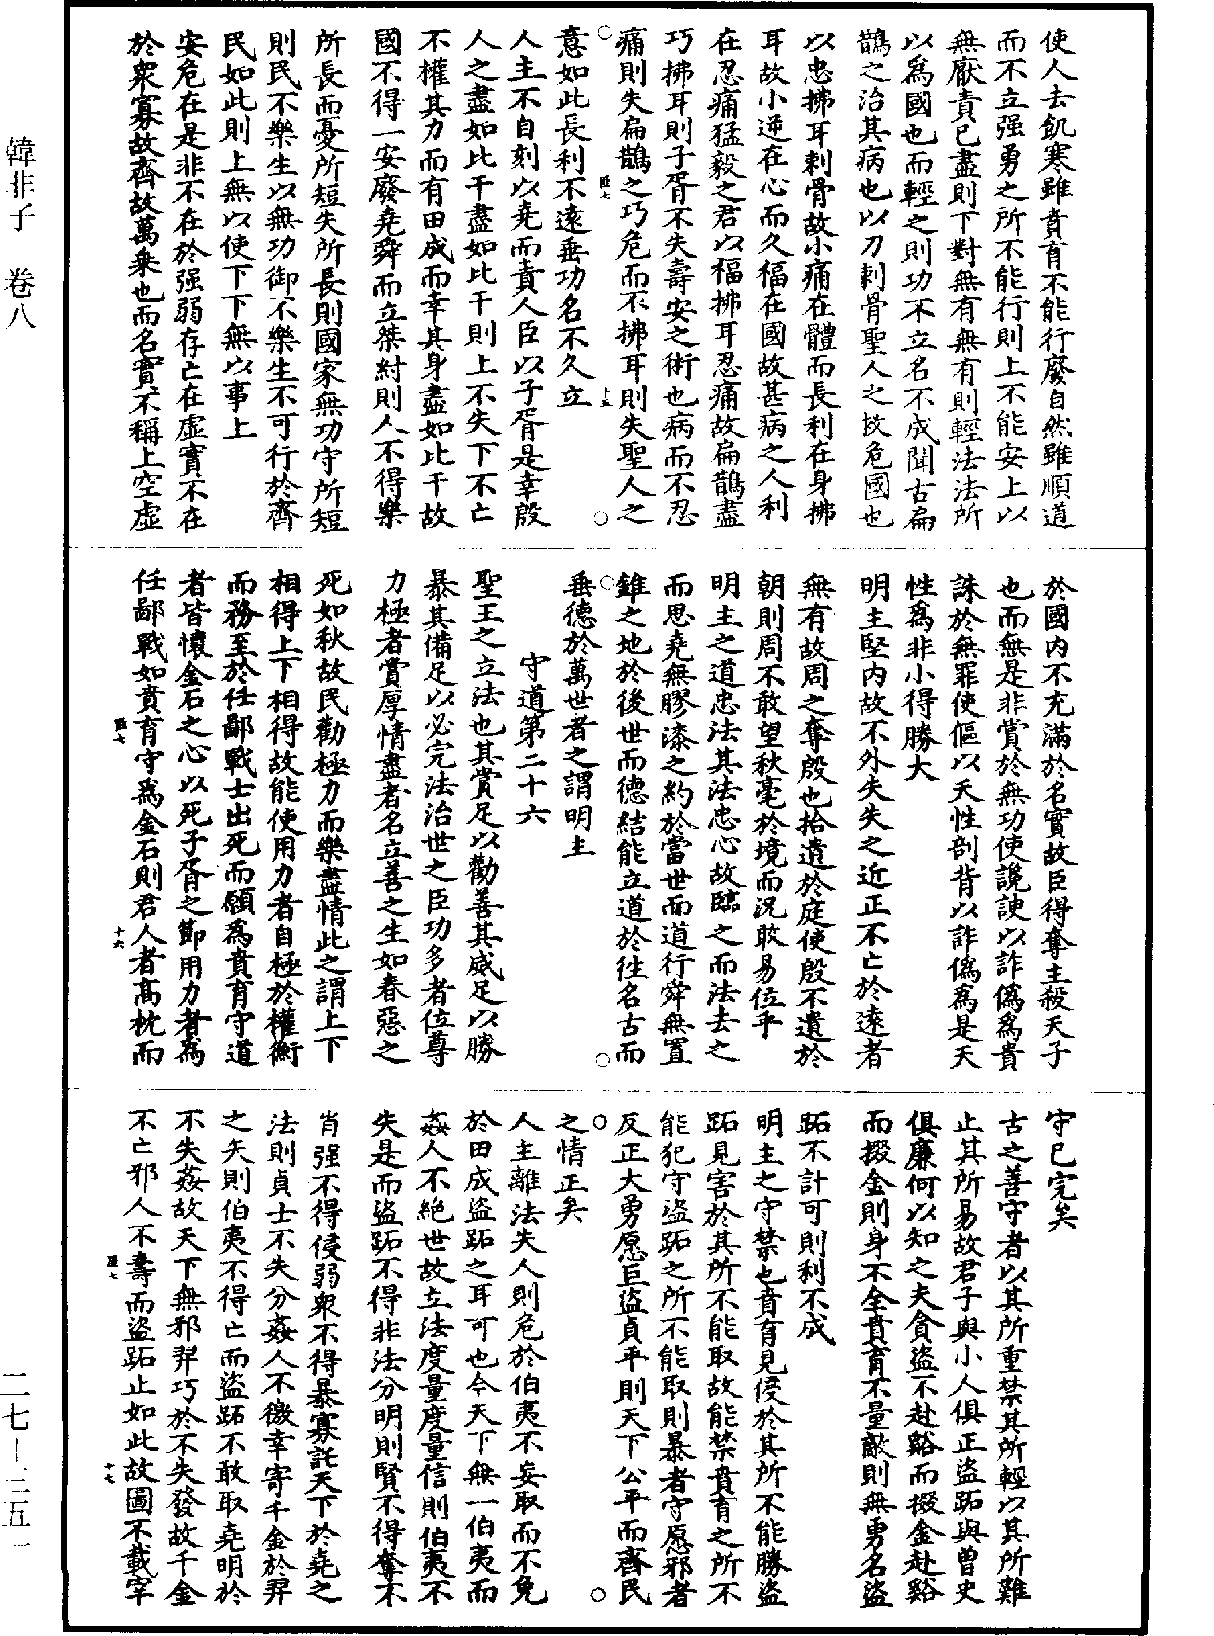 使人去飢寒雖賁育不能行廢自然雖順道
而不立强勇之所不能行則上不能安上以
無厭責已盡則下對無有無有則輕法法所
以爲國也而輕之則功不立名不成聞古扁
鵲之治其病也以刀刺骨聖人之救危國也
以忠拂耳刺骨故小痛在體而長利在身拂
耳故小逆在心而久福在國故甚病之人利
在忍痛猛毅之君以福拂耳忍痛故扁鵲盡
巧拂耳則子胥不失壽安之術也病而不忍
痛則失扁鵲之巧危而不拂耳則失聖人之
意如此長利不遠垂功名不久立
人主不自刻以堯而責人臣以子胥是幸殷
人之盡如比干盡如比干則上不失下不亡
不權其力而有田成而幸其身盡如比干故
國不得一安廢堯舜而立桀紂則人不得樂
所長而憂所短失所長則國家無功守所短
則民不樂生以無功御不樂生不可行於齊
民如此則上無以使下下無以事上
安危在是非不在於强弱存亡在虛實不在
於衆寡故齊故萬乘也而名實不稱上空虛
於國内不充滿於名實故臣得奪主殺天子
也而無是非賞於無功使讒諛以詐僞爲貴
誅於無罪使傴以天性剖背以詐僞爲是天
性爲非小得勝大
明主堅内故不外失失之近正不亡於遠者
無有故周之奪殷也拾遺於庭使殷不遺於
朝則周不敢望秋毫於境而況敢易位乎
明主之道忠法其法忠心故臨之而法去之
而思堯無膠漆之約於當世而道行舜無置
錐之地於後世而德結能立道於徃名古而
垂德於萬世者之謂明主
守道第二十六
聖王之立法也其賞足以勸善其威足以勝
暴其備足以必完法治世之臣功多者位尊
力極者賞厚情盡者名立善之生如春惡之
死如秋故民勸極力而樂盡情此之謂上下
相得上下相得故能使用力者自極於權衡
而務至於任鄙戰士出死而願爲賁育守道
者皆懷金石之心以死子胥之節用力者爲
任鄙戰如賁育守爲金石則君人者高枕而
守已完矣
古之善守者以其所重禁其所輕以其所難
止其所易故君子與小人俱正盜跖與曾史
俱廉何以知之夫貪盜不赴谿而掇金赴谿
而掇金則身不全賁育不量敵則無勇名盜
跖不計可則利不成
明主之守禁也賁育見侵於其所不能勝盜
跖見害於其所不能取故能禁賁育之所不
能犯守盜跖之所不能取則暴者守愿邪者
反正大勇愿巨盜貞平則天下公平而齊民
之情正矣
人主離法失人則危於伯夷不妄取而不免
於田成盜跖之耳可也今天下無一伯夷而
姦人不絶世故立法度量度量信則伯夷不
失是而盜跖不得非法分明則賢不得奪不
肖强不得侵弱衆不得暴寡託天下於堯之
法則貞士不失分姦人不徼幸寄千金於羿
之矢則伯夷不得亡而盜跖不敢取堯明於
不失姦故天下無邪羿巧於不失發故千金
不亡邪人不壽而盜跖止如此故圖不載宰
韓非子 卷八
二七—三五一